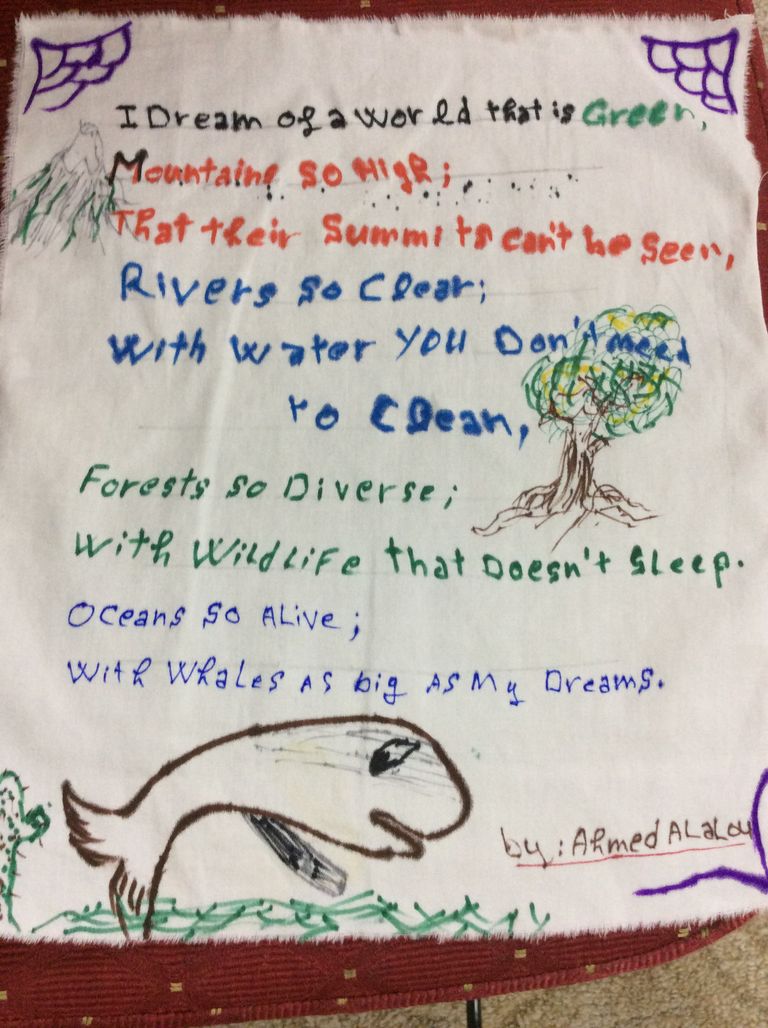 I Dream of a World that is Green,
Mountains so High;
That their Summits can't be Seen,
Rivers so Clear;
With Water YOU Don't need
to Clean,
Forests so Diverse;
With WildLiFe that Doesn't Sleep.
Oceans so ALive;
With Whales As big As My Dreams.
by: Ahmed ALaLou